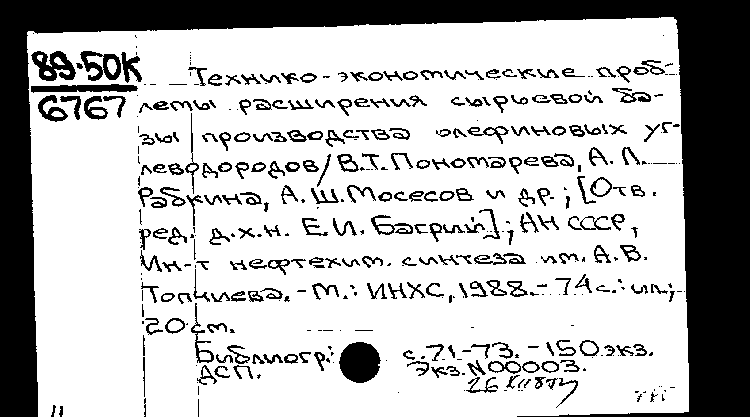 89-50К
6767
Технико-экономические проб-
лемы расширения сырьевой ба-
зы производства олефиновых уг-
леводородов/В.Т.Пономарева, А.Л.
Рабкина, А.Ш.Мосесов и др.; [Отв.
ред. д.х.н. Е.И. Багрий]; АН СССР,
Ин-т нефтехим. синтеза им. А.В.
Топчиева. - М.: ИНХС, 1988. - 74 с.: ил.;
20 см.
Библиогр.: с.71-73. - 150 экз.
ДСП. Экз.N00003.
11